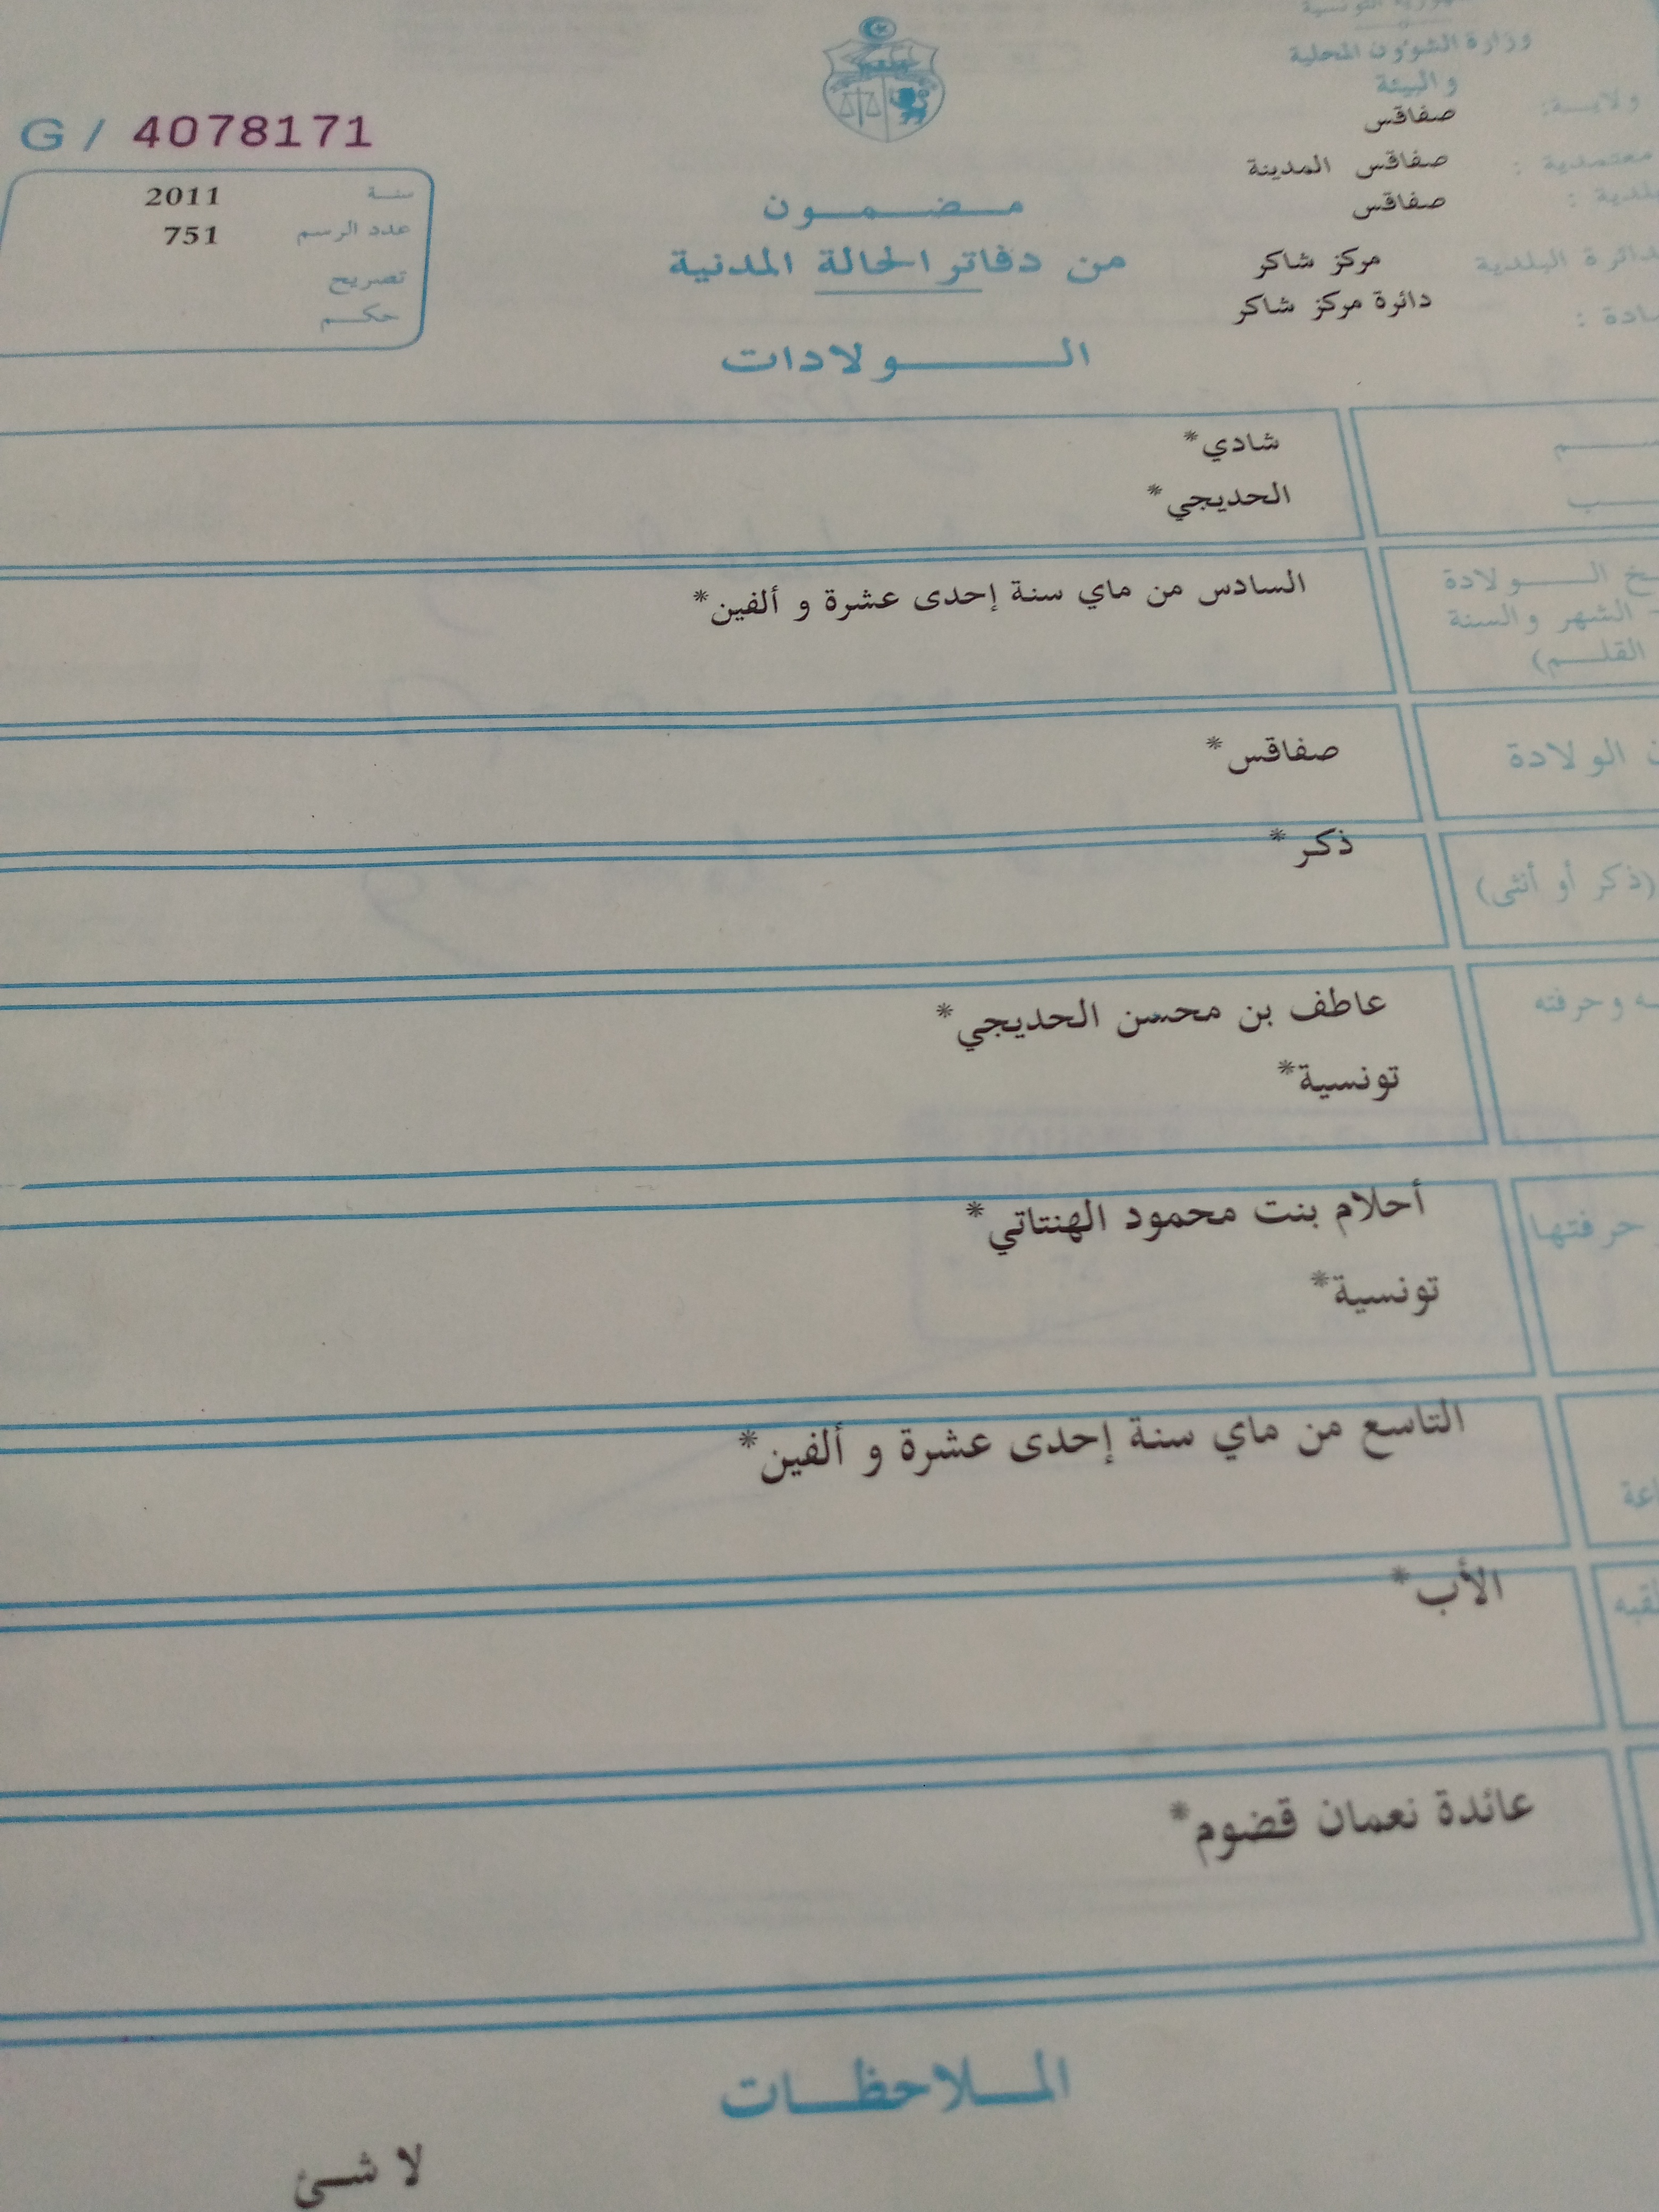 وزارة الشؤون المحلية
والبيئة
ولايـــة: صفاقس
معتمدية : صفاقس المدينة
صفاقس
البلدية مركز شاكر
دائرة مركز شاكر
G / 4078171
سنة 2011
عدد الرسم 751
تصريح
حكـــم
مـــضـــمـــون
من دفاتر الحالة المدنية
الـــــــولادات
شادي*
الحديجي*
الـــــولادة السادس من ماي سنة إحدى عشرة و ألفين*
الشهر والسنة
القلـــم)
الولادة صفاقس*
(ذكر أو أنثى) ذكر*
وحرفته عاطف بن محسن الحديجي*
تونسية*
حرفتها أحلام بنت محمود الهنتاتي*
تونسية*
التاسع من ماي سنة إحدى عشرة و ألفين*
الأب*
عائدة نعمان قضوم*
المـــلاحظـــات
لا شـــئ